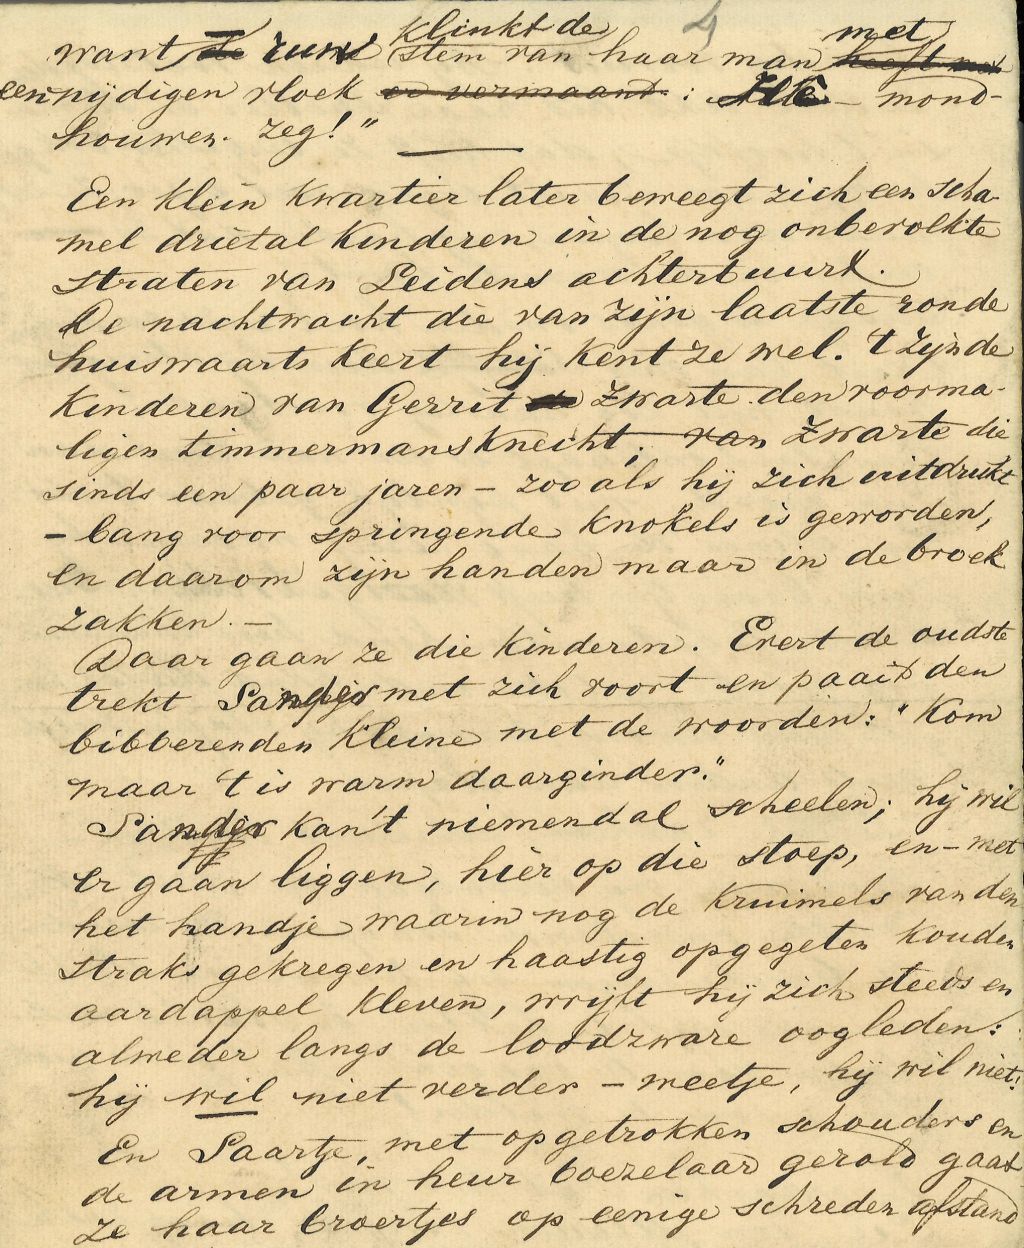 4
want ruw klinkt de stem van haar man met
een nijdigen vloek : Stte – mond-
houwen. zeg!"
Een klein kwartier later beweegt zich een scha-
mel drietal kinderen in de nog onbevolkte
straten van Leidens achterbuurt.
De nachtwacht die van zijn laatste ronde
huiswaarts keert hij kent ze wel. 't Zijn de
kinderen van Gerrit Zwarte den voorma-
ligen timmermansknecht; van Zwarte die
sinds een paar jaren – zooals hij zich uitdrukt
– bang voor springende knokels is geworden,
en daarom zijn handen maar in de broek
zakken. –
Daar gaan ze die kinderen. Evert de oudste
trekt Sander met zich voort en paait den
bibberenden kleine met de woorden: "Kom
maar 't is warm daarginder."
Sander kan't niemendal scheelen; hij wil
er gaan liggen, hier op die stoep, en – met
het handje waarin nog de kruimels van den
straks gekregen en haastig opgegeten kouden
aardappel kleven, wrijft hij zich steeds en
alweder langs de loodzware oogleden:
hij wil niet verder – weetje, hij wil niet!
En Saartje, met opgetrokken schouders en
de armen in heur boezelaar gerold gaat
ze haar broertjes op eenige schreden afstand